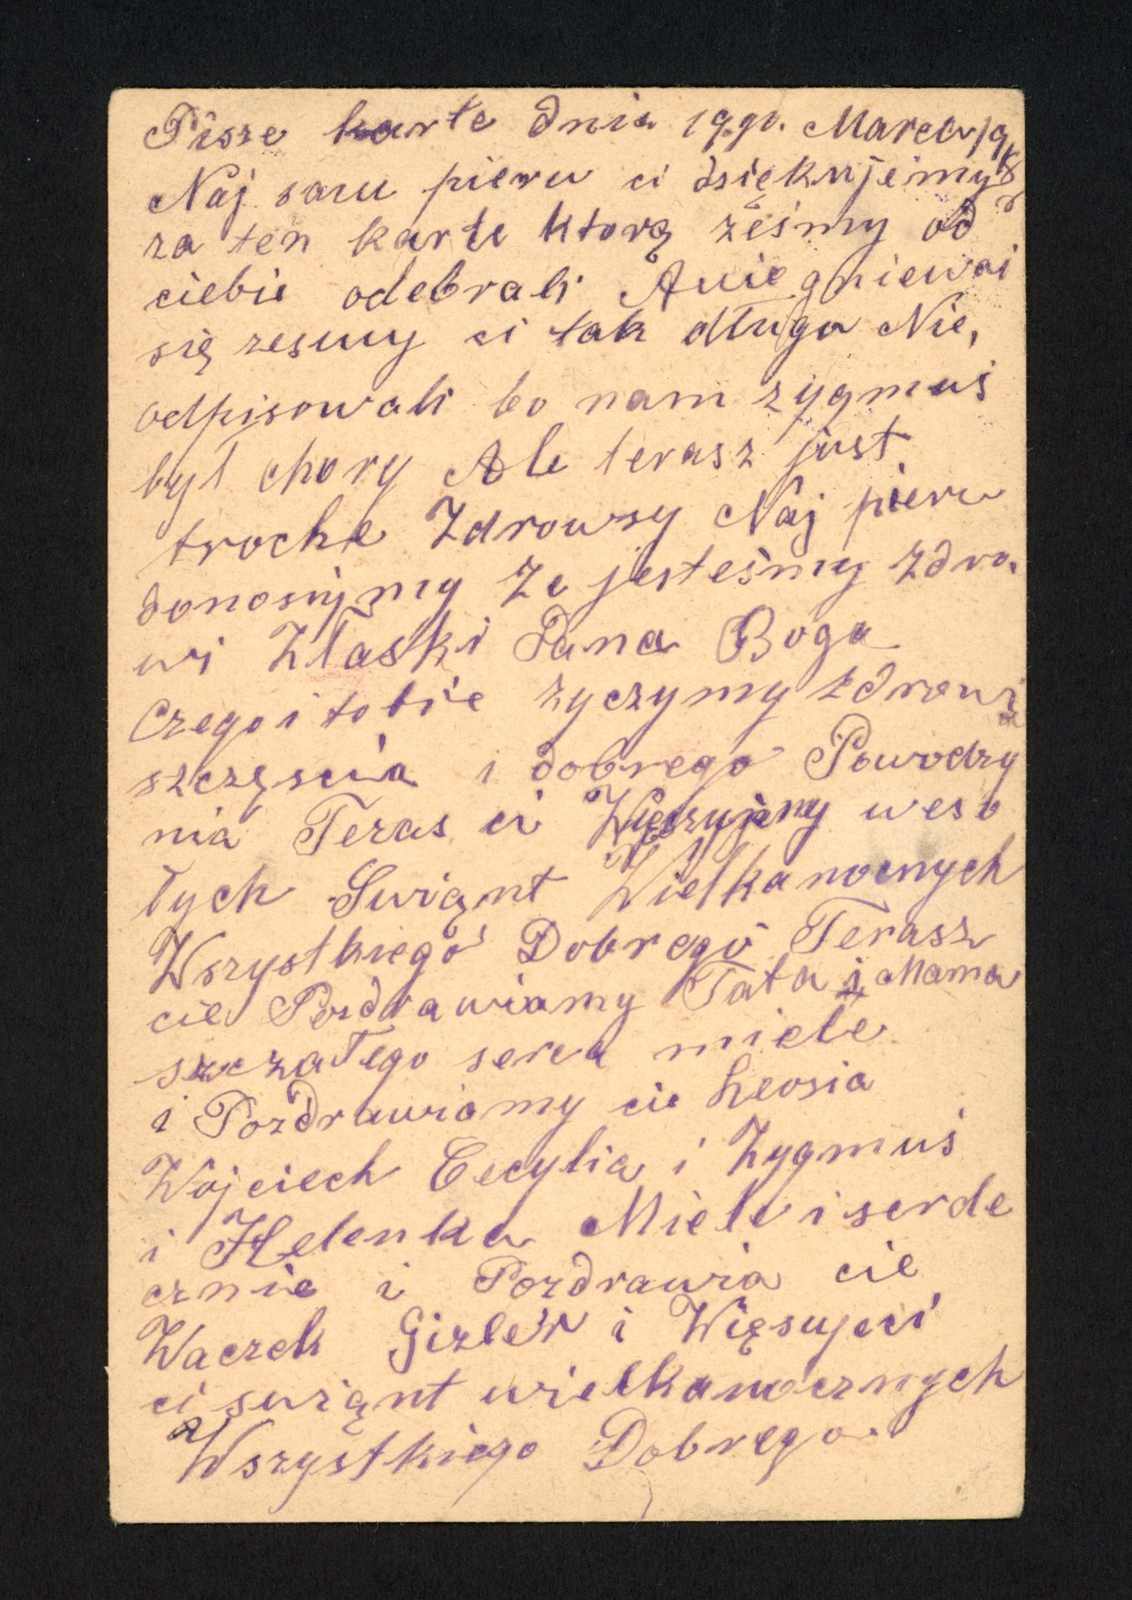 Pisze karte dnia 19go. Marca 19
Naj samu pierw ci dsiękujemy
za ten karte ktorą żeśmy od
ciebie odebrali Anie gniewai
się zesmy ci tak długo Nie,
odpisowali bo nam zygmuś
był chory Ale terasz just
troche Zdrowsy Naj pierw
donosiymy Ze jesteśmy Zdro.
wi Złaski Pana Boga
Czego i tobie zyczymy zdrowi
szczęscia i dobrego Powodzy
nia Teras ci Więczujemy weso
łych Swiąnt Wielkanocnych
Wszystkiego Dobrego Terasz
cie Pozdrawiamy Tata i Mama
szczałego serca miele
i Pozdrawiamy cie Leosia
Wojciech Cecylia i Zygmuś
i Helenka Miele i serde
cznie i Pozdrawia cie
Waczek Gizler i Więsujeci
ci swiąnt wielkanocznych
Wszystkiego Dobrego.